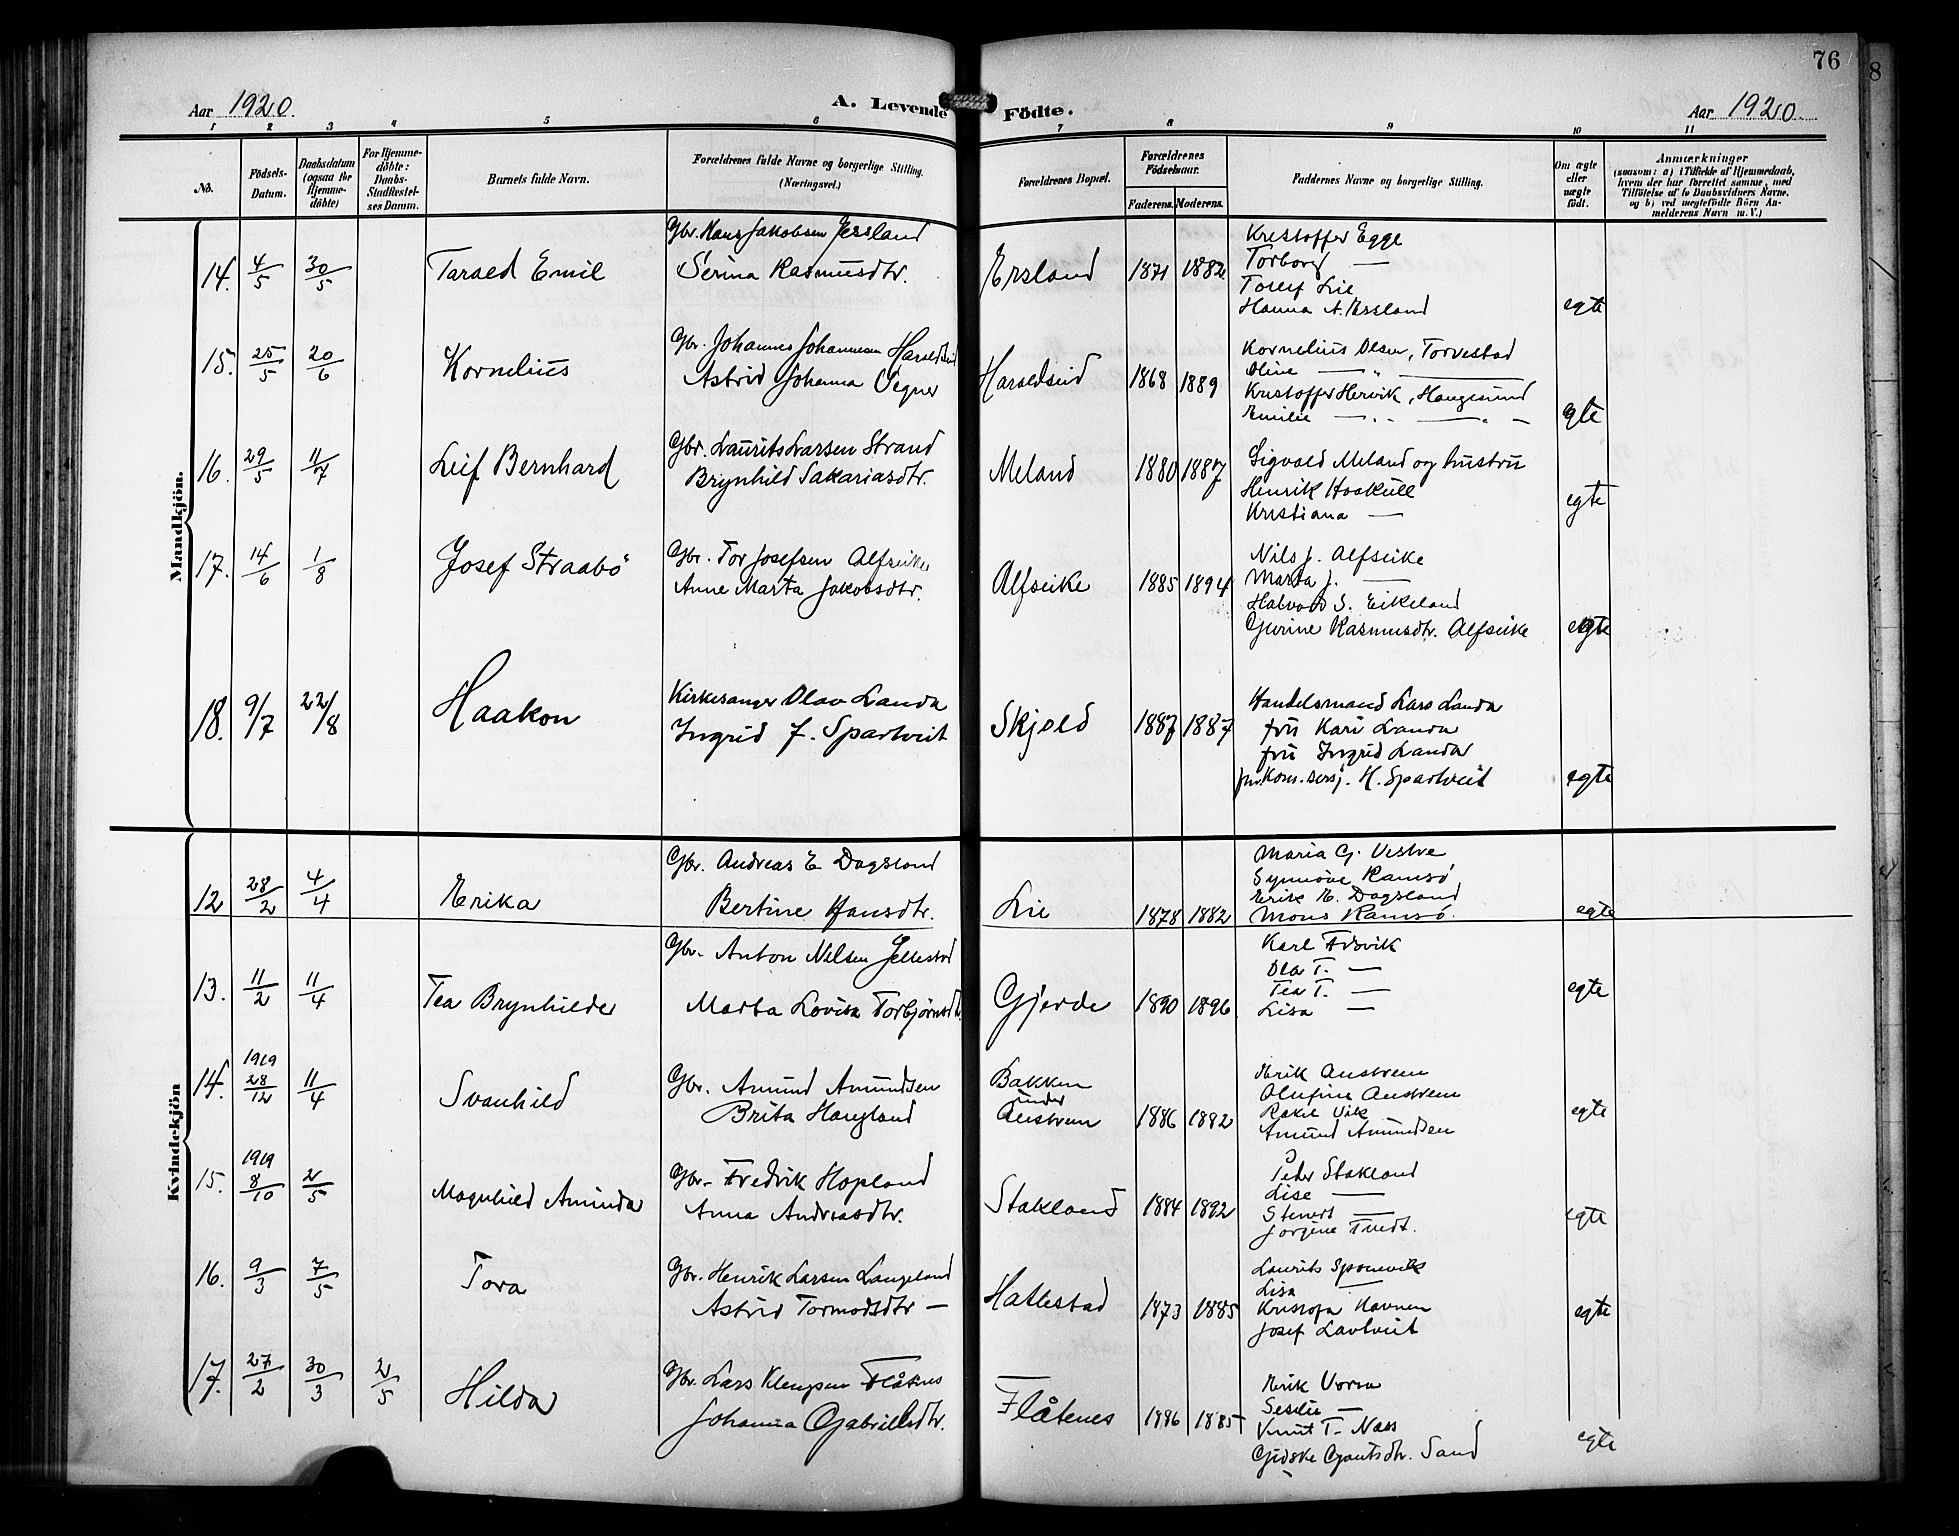 76
8
Aar 1920. A. Levende Födte. Aar 1920.
1 2 3 4 5 6 7 8 9 10 11
No.
Födsels-Datum.
Daabsdatum (ogsaa for Hjemme-döbte)
For Hjemme-döbte: Daabs-Stadfestel-ses Datum.
Barnets fulde Navn.
Forældrenes fulde Navne og borgerlige Stilling. (Næringsvei.)
Forældrenes Bopæl.
Forældrenes Födselsaar.
Faderens. Moderens.
Faddernes Navne og borgerlige Stilling.
Om ægte eller uægte födt.
Anmærkninger
(saasom: a) i Tilfælde af Hjemmedaab, hvem der har forrettet samme, med Tilföielse af to Daabsvidners Navne. og b) ved uegtefödte Börn An-melderens Navn m. V.)
Mandkjön.
14. 4/5 30/5 Tarald Emil Gbr. Hans Jakobsen Ersland
Serina Rasmusdtr. Ersland 1871 1882 egte
Kristoffer Egge
Torborg —
Tollef Lie
Hanna A. Ersland
15. 25/5 20/6 Kornelius Gbr. Johannes Johannesen Haraldseid
Astrid Johanna Vegner Haraldseid 1868 1889 egte
Kornelius Olsen, Torvestad
Oline — " —
Kristoffer Hervik, Haugesund
Emilie — " — " —
16. 29/5 11/7 Leif Bernhard Gbr. Laurits Larsen Strand
Brynhild Sakariasdtr. Meland 1880 1887 egte
Sigvald Meland og hustru
Henrik Haakull
Kristiana —
17. 14/6 1/8 Josef Straabö Gbr. Tor Josefsen Alfseike
Anne Marta Jakobsdtr. Alfseike 1885 1894 egte
Nils J. Alfseike
Marta J. —
Halvard S. Eikeland
Gurine Rasmusdtr. Alfseike
18. 9/7 22/8 Haakon Kirkesanger Olav Landa
Ingrid J. Spartveit Skjold 1887 1887 egte
Handelsmand Lars Landa
fru Kari Landa
fru Ingrid Landa
H. Spartveit
Kvindekjön
12 28/2 4/4 Erika Gbr. Andreas E. Dagsland
Bertine Hansdtr. Lie 1878 1882 egte
Maria G. Vestre
Synnöve Ramsö
Erik E. Dagsland
Mons Ramsö.
13. 11/2 11/4 Tea Brynhilde Gbr. Anton Nilsen Jellestad
Marta Lovisa Torbjørnsdtr. Gjerde 1890 1896 egte
Karl
Ola T. —
Tea T. —
Lisa —
14. 1919 28/12 11/4 Svanhild Gbr. Amund Amundsen
Brita Haugland Bakken under Austrem 1886 1892 egte
Erik Austrem
Olufine Austrem
Rakel Vik
Amund Amundsen
15. 1919 8/10 2/5 Magnhild Aminda Gbr. Fredrik Hopland
Anna Andreasdtr. Stakland 1884 1892 egte
Peder Stakland
Lise —
—
Jorgine Tvedt.
16. 9/3 7/5 Tora Gbr. Henrik Larsen Langeland
Astrid Tormodsdtr — Hallestad 1873 1885 egte
Laurits Sponevik
Lisa —
Kristofa Havnen
Josef Lavtveit
17. 27/2 30/3 2/5 Hilda Gbr. Lars Flåtnes
Johanna Gabrielsdtr. Flåtenes 1896 1885 egte
Erik Vorra
Seselie —
Knut T. Næss
Gjidske Gautsdtr. Sand